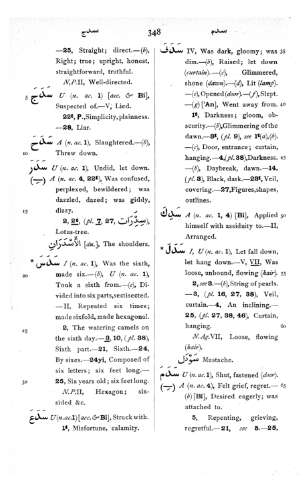 سدج
348
سدم
—25, Straight; direct.—(b),
Right; true; upright, honest,
straightforward, truthful.
N.P.II, Well-directed.
سدج U (n. ac. 1) [acc. & Bi],
Suspected of.—V, Lied.
22², P., Simplicity, plainness.
—28, Liar.
سدح A (n. ac. 1), Slaughtered.—(b),
Threw down.
سدر U (n. ac. 1), Undid, let down.
A (n. ac. 4, 22²), Was confused,
perplexed, bewildered; was
dazzled, dazed; was giddy,
dizzy.
2, 2ᵃ, (pl. 7, 27, سدرات),
Lotus-tree.
الأسدران [du.], The shoulders.
*سدس I (n. ac. 1), Was the sixth,
made six.—(b), U (n. ac. 1),
Took a sixth from.—(c), Di-
vided into six parts, sextisected.
—II, Repeated six times;
made sixfold, made hexagonal.
2, The watering camels on
the sixth day.—9, 10, (pl. 38),
Sixth part.—21, Sixth.—24,
By sixes.—24yi, Composed of
six letters; six feet long.—
25, Six years old; six feet long.
N.P.II, Hexagon; six-
sided &c.
سدع U (n.ac.1) [acc.& Bi], Struck with.
1³, Misfortune, calamity.
سدف IV, Was dark, gloomy; was
dim.—(b), Raised; let down
(curtain).—(c), Glimmered,
shone (dawn).—(d), Lit (lamp).
—(e), Opened (door).—(f), Slept.
—(g) ['An], Went away from.
1³, Darkness; gloom, ob-
scurity.—(b), Glimmering of the
dawn.—3³, (pl. 9), see 1³(a),(b).
—(c), Door, entrance; curtain,
hanging.—4,(pl. 38), Darkness.
—(b), Daybreak, dawn.—14,
(pl. 3), Black, dark.—23², Veil,
covering.—27, Figures, shapes,
outlines.
سدك A (n. ac. 1, 4) [Bi], Applied
himself with assiduity to.—II,
Arranged.
*سدل I, U (n. ac. 1), Let fall down,
let hang down.—V, VII, Was
loose, unbound, flowing (hair).
2, see 3.—(b), String of pearls.
—3, (pl. 16, 27, 38), Veil,
curtain.—4, An inclining.—
25, (pl. 27, 38, 46), Curtain,
hanging.
N.Ag.VII, Loose, flowing
(hair).
سودل Mostache.
سدم U (n. ac. 1), Shut, fastened (door).
A (n. ac. 4), Felt grief, regret.—
(b) [Bi], Desired eagerly; was
attached to.
5, Repenting, grieving,
regretful.—21, see 5.—25,